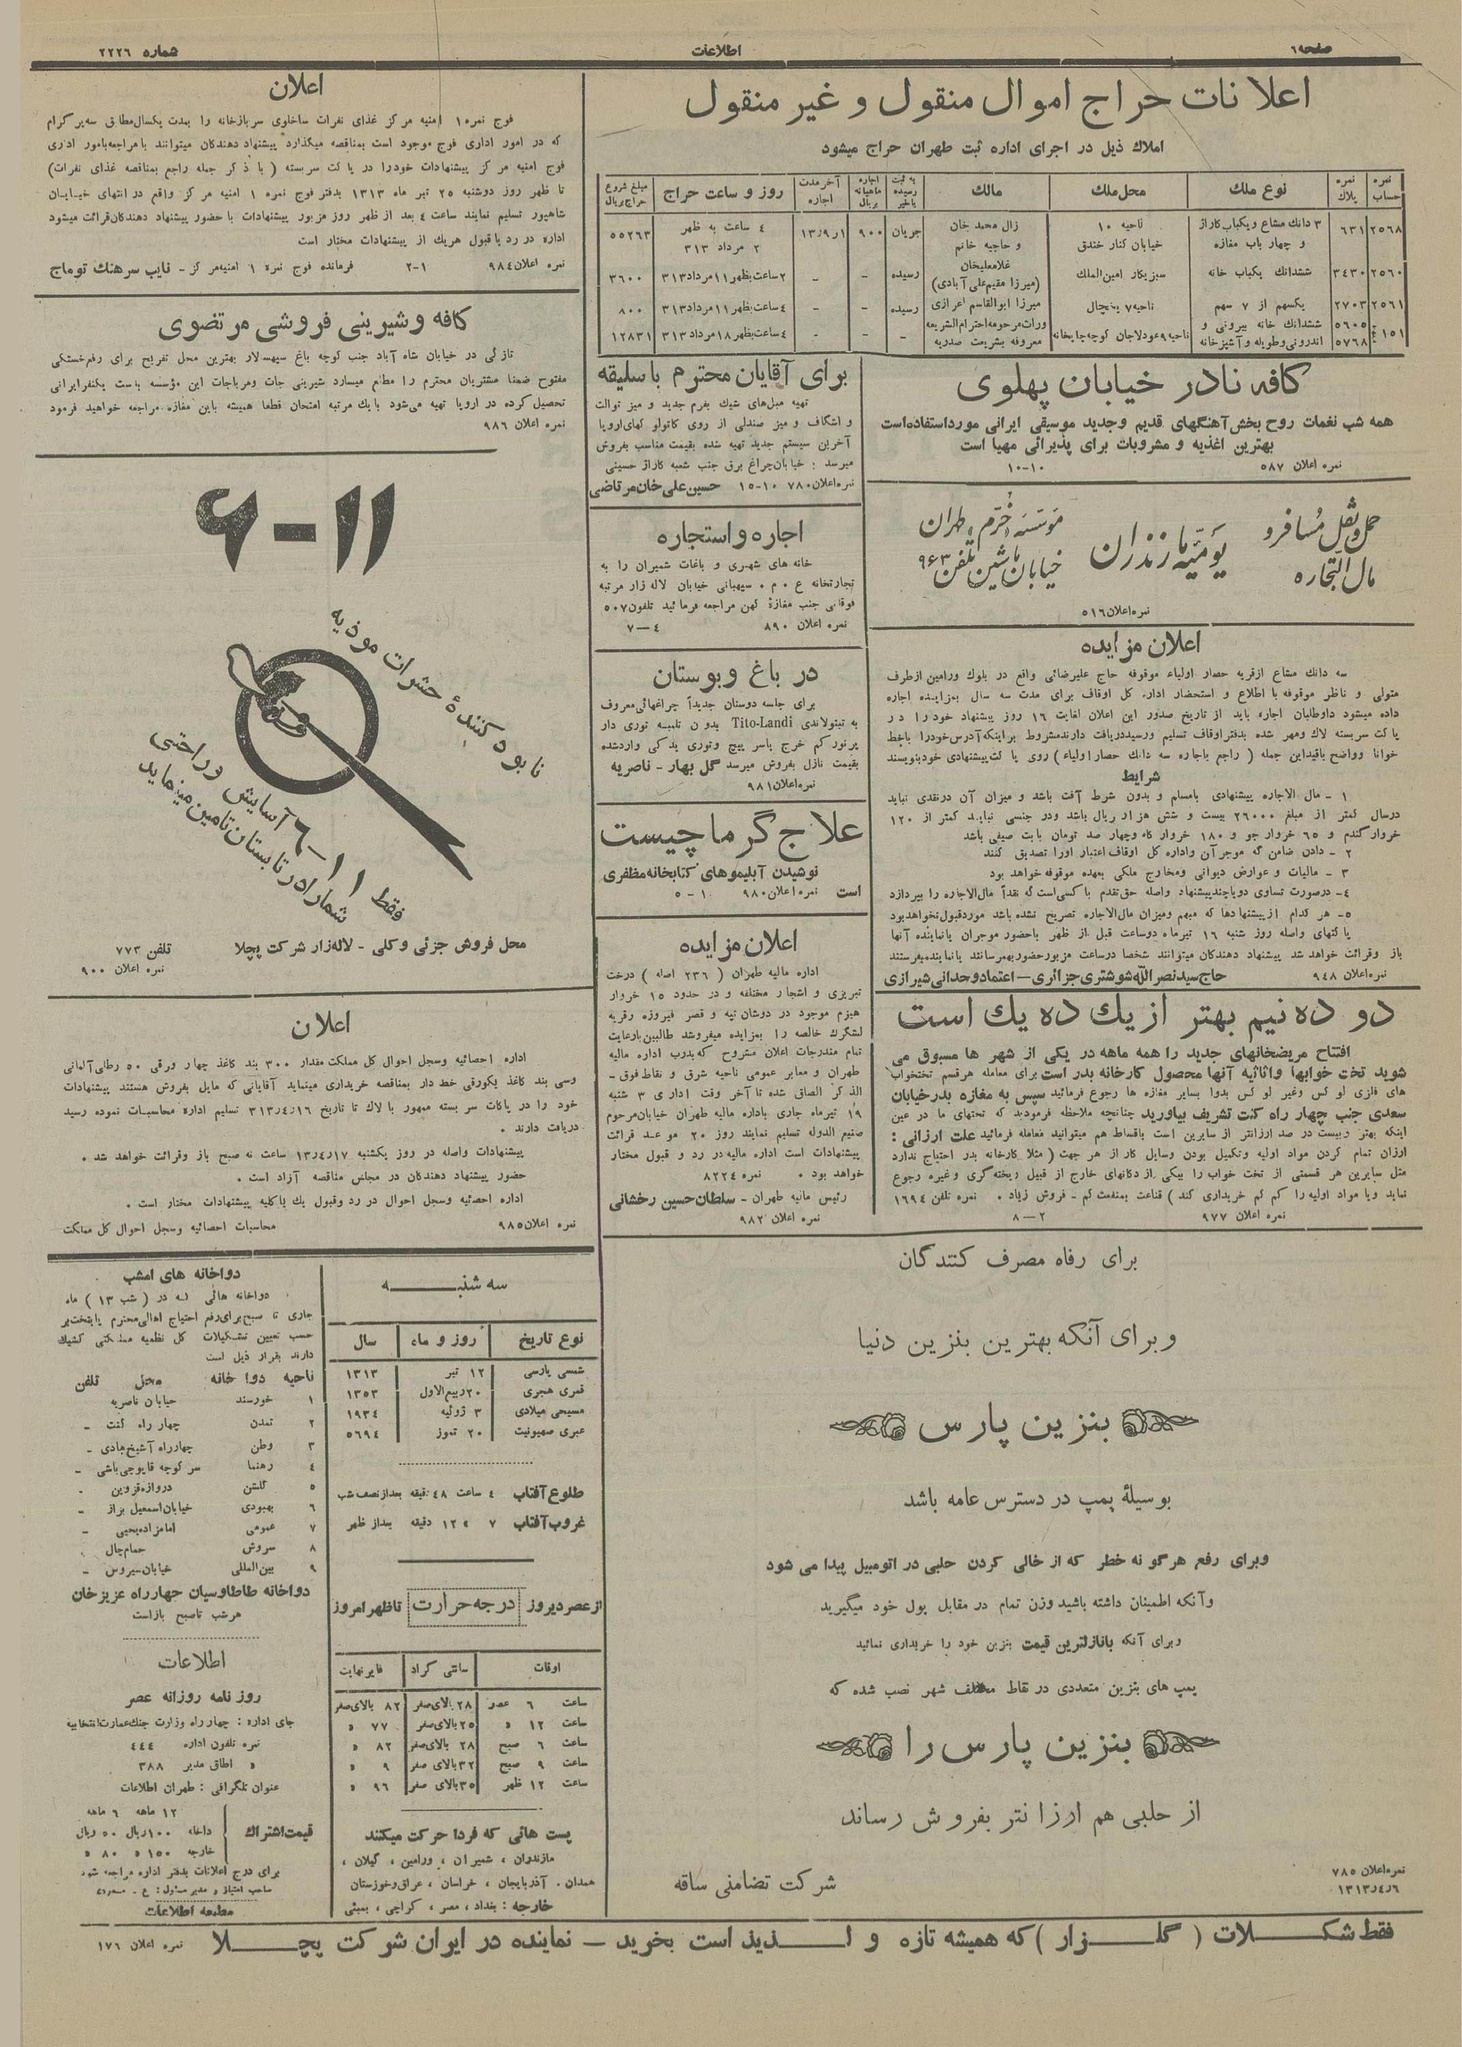 صفحه۶
اطلاعات
شماره ۲۲۲۶
اعلانات حراج اموال منقول و غیر منقول
املاك ذیل در اجرای اداره ثبت طهران حراج میشود
نمره حساب | نمره پلاك | نوع ملك | محل ملك | مالك | به ثبت رسیده یا خیر | اجاره ماهیانه بریال | آخر مدت اجاره | روز و ساعت حراج | مبلغ شروع حراج بریال
۲۵۶۸ | ۶۳۱ | ۳ دانك مشاع و یکباب کاراژ و چهار باب مغازه | ناحیه ۱۰ خیابان کنار خندق | زال محمد خان و حاجیه خانم | جریان | ۹۰۰ | ۱ر۹ر۱۳ | ٤ ساعت به ظهر ۲ مرداد ۳۱۳ | ۵۵۲۶۳
۲۵۶۰ | ۳٤۳۰ | ششدانك یکباب خانه | سبزیکار امین‌الملك | غلامعلیخان (میرزا مقیم علی آبادی) | رسیده | – | – | ۲ساعت بظهر ۱۱ مرداد ۳۱۳ | ۳۶۰۰
۲۵۶۱ | ۲۷۰۳ | یکسهم از ۷ سهم | ناحیه ۷ یخچال | میرزا ابوالقاسم اعرازی | رسیده | – | – | ٤ساعت بظهر ۱۱ مرداد ۳۱۳ | ۸۰۰
۵۶۰۵ ۵۷۶۸ | ششدانك خانه بیرونی و اندرونی وطویله و آشپزخانه | ناحیه ۹ عودلاجان کوچه چاپخانه | وراث مرحومه احترام الشریعه معروفه بشریعت صدریه | – | – | – | ٤ساعت بظهر ۱۸ مرداد ۳۱۳ | ۱۲۸۳۱
کافه نادر خیابان پهلوی
همه شب نغمات روح بخش آهنگهای قدیم وجدید موسیقی ایرانی مورداستفاده‌است
بهترین اغذیه و مشروبات برای پذیرائی مهیا است
نمره اعلان ۵۸۷ ۱۰-۱۰
حمل و نقل مسافر و مال التجاره
یومیه مازندران
مؤسسه «خرم» طهران
خیابان ماشین تلفن ۹۶۳
نمره اعلان ۵۱۶
اعلان مزایده
سه دانك مشاع ازقریه حصار اولیاء موقوفه حاج علیرضائی واقع در بلوك ورامین ازطرف
متولی و ناظر موقوفه با اطلاع و استحضار اداره کل اوقاف برای مدت سه سال بمزایده اجاره
داده میشود داوطلبان اجاره باید از تاریخ صدور این اعلان لغایت ۱۶ روز پیشنهاد خود را در
پاکت سربسته لاك ومهر شده بدفتر اوقاف تسلیم ورسید دریافت دارند مشروط براینکه آدرس خودرا باخط
خوانا وواضح باقیداین جمله ( راجع باجاره سه دانك حصار اولیاء ) روی پاکت پیشنهادی خود بنویسند
شرایط
۱ - مال الاجاره پیشنهادی بامسلم و بدون شرط آفت باشد و میزان آن درنقدی نباید
درسال کمتر از مبلغ ۲۶۰۰۰ بیست و شش هزار ریال باشد ودر جنسی نباید کمتر از ۱۲۰
خروار گندم و ۶۵ خروار جو و ۱۸۰ خروار کاه وچهار صد تومان بابت صیفی باشد
۲ - دادن ضامن که موجر آن واداره کل اوقاف اعتبار اورا تصدیق کنند
۳ - مالیات و عوارض دیوانی ومخارج ملکی بعهده موقوفه خواهد بود
٤ - درصورت تساوی دویاچند پیشنهاد واصله حق تقدم باکسی است که نقداً مال‌الاجاره را بپردازد
۵ - هر کدام ازپیشنهادها که مبهم ومیزان مال‌الاجاره تصریح نشده باشد مورد قبول نخواهد بود
پاکتهای واصله روز شنبه ۱۶ تیرماه دوساعت قبل از ظهر باحضور موجران یا نماینده آنها
باز وقرائت خواهد شد پیشنهاد دهندگان میتوانند شخصا درساعت مزبور حضور بهمرسانند یا نماینده بفرستند
نمره اعلان ۹٤۸ حاج سید نصرالله شوشتری جزائری – اعتماد وحدانی شیرازی
دو ده نیم بهتر از یك ده یك است
افتتاح مریضخانهای جدید را همه ماهه در یکی از شهر ها مسبوق می
شوید تخت خوابها واثاثیه آنها محصول کارخانه بدر است برای معامله هرقسم تختخواب
های فلزی لو کس وغیر لو کس بدوا بسایر مغازه ها رجوع فرمائید سپس به مغازه بدر خیابان
سعدی جنب چهار راه کنت تشریف بیاورید چنانچه ملاحظه فرمودید که تختهای ما در عین
اینکه بهتر وبیست در صد ارزانتر از سایرین است باقساط هم میتوانید معامله فرمائید علت ارزانی :
ارزان تمام کردن مواد اولیه وتکمیل بودن وسایل کار از هر جهت ( مثلا کارخانه بدر احتیاج ندارد
مثل سایرین هر قسمتی از تخت خواب را بیکی از دکانهای خارج از قبیل ریخته گری وغیره رجوع
نماید ویا مواد اولیه را کم کم خریداری کند ) قناعت بمنفعت کم - فروش زیاد . نمره تلفن ۱۶۹٤
نمره اعلان ۹۷۷ ۲–۸
برای آقایان محترم با سلیقه
تهیه مبل‌های شیك بفرم جدید و میز توالت
و اشگاف و میز صندلی از روی کاتولو کهای اروپا
آخرین سیستم جدید تهیه شده بقیمت مناسب بفروش
میرسد : خیابان چراغ برق جنب شعبه کاراژ حسینی
نمره اعلان ۷۸۰ ۱۰–۱۵ حسین علی خان مرتاضی
اجاره و استجاره
خانه های شهری و باغات شمیران را به
تجارتخانه ع . م . سیهبانی خیابان لاله زار مرتبه
فوقانی جنب مغازهٔ کهن مراجعه فرمائید تلفون ۵۰۷
نمره اعلان ۸۹۰ ٤–۷
در باغ و بوستان
برای جلسه دوستان جدیداً چراغهائی معروف
به تیتولاندی Tito-Landi بدون تلمبه توری دار
پرنور کم خرج باسر پیچ وتوری یدکی واردشده
بقیمت نازل بفروش میرسد گل بهار - ناصریه
نمره اعلان ۹۸۱
علاج گرما چیست
نوشیدن آبلیموهای کتابخانه مظفری
است نمره اعلان ۹۸۰ ۱–۵
اعلان مزایده
اداره مالیه طهران ( ۲۳۶ اصله ) درخت
تبریزی و اشجار مختلفه و در حدود ۱۵ خروار
هیزم موجود در دوشان تپه و قصر فیروزه رقریه
لشگرك خالصه را بمزایده میفروشد طالبین بارعایت
تمام مندرجات اعلان مشروح که بدرب اداره مالیه
طهران و معابر عمومی ناحیه شرق و نقاط فوق-
الذکر الصاق شده تا آخر وقت اداری ۳ شنبه
۱۹ تیرماه جاری باداره مالیه طهران خیابان مرحوم
صنیع الدوله تسلیم نمایند روز ۲۰ موعد قرائت
پیشنهادات است اداره مالیه در رد و قبول مختار
خواهد بود . نمره ۸۲۲٤
رئیس مالیه طهران - سلطان حسین رخشانی
نمره اعلان ۹۸۲
اعلان
فوج نمره ۱ امنیه مرکز غذای نفرات ساخلوی سربازخانه را بمدت یکسال مطابق سه بر گرام
که در امور اداری فوج موجود است بمناقصه میگذارد پیشنهاد دهندگان میتوانند بامراجعه بامور اداری
فوج امنیه مرکز پیشنهادات خودرا در پاکت سربسته ( با ذکر جمله راجع بمناقصه غذای نفرات )
تا ظهر روز دوشنبه ۲۵ تیر ماه ۱۳۱۳ بدفتر فوج نمره ۱ امنیه مرکز واقع در انتهای خیابان
شاهپور تسلیم نمایند ساعت ٤ بعد از ظهر روز مزبور پیشنهادات با حضور پیشنهاد دهندگان قرائت میشود
اداره در رد یا قبول هریك از پیشنهادات مختار است
نمره اعلان ۹۸٤ ۱-۲ فرمانده فوج نمره ۱ امنیه مرکز - نایب سرهنك توماج
کافه و شیرینی فروشی مرتضوی
تازگی در خیابان شاه آباد جنب کوچه باغ سپهسالار بهترین محل تفریح برای رفع خستگی
مفتوح ضمنا مشتریان محترم را مطلع میسازد شیرینی جات ومرباجات این مؤسسه بدست یکنفر ایرانی
تحصیل کرده در اروپا تهیه می‌شود با یك مرتبه امتحان قطعا همیشه باین مغازه مراجعه خواهید فرمود
نمره اعلان ۹۸۶
۱۱-۶
نابود کنندهٔ حشرات موذیه
فقط ۱۱-۶ آسایش و راحتی
شما را در تابستان تامین مینماید
محل فروش جزئی و کلی - لاله زار شرکت پچلا
تلفن ۷۷۳
نمره اعلان ۹۰۰
اعلان
اداره احصائیه وسجل احوال کل مملکت مقدار ۳۰۰ بند کاغذ چهار ورقی ۵۰ رطلی آلمانی
وسی بند کاغذ یکورقی خط دار بمناقصه خریداری مینماید آقایانی که مایل بفروش هستند پیشنهادات
خود را در پاکات سر بسته ممهور با لاك تا تاریخ ۱۶ر٤ر۳۱۳ تسلیم اداره محاسبات نموده رسید
دریافت دارند .
پیشنهادات واصله در روز یکشنبه ۱۷ر٤ر۱۳ ساعت نه صبح باز وقرائت خواهد شد .
حضور پیشنهاد دهندگان در مجلس مناقصه آزاد است .
اداره احصائیه وسجل احوال در رد وقبول یك یاکلیه پیشنهادات مختار است .
نمره اعلان ۹۸۵ محاسبات احصائیه وسجل احوال کل مملکت
برای رفاه مصرف کنندگان
و برای آنکه بهترین بنزین دنیا
بنزین پارس
بوسیلهٔ پمپ در دسترس عامه باشد
وبرای رفع هرگو نه خطر که از خالی کردن حلبی در اتومبیل پیدا می شود
وآنکه اطمینان داشته باشید وزن تمام در مقابل پول خود میگیرید
وبرای آنکه بانازلترین قیمت بنزین خود را خریداری نمائید
پمپ های بنزین متعددی در نقاط مختلف شهر نصب شده که
بنزین پارس را
از حلبی هم ارزا نتر بفروش رساند
شرکت تضامنی ساقه
نمره اعلان ۷۸۵
۶ر٤ر۱۳۱۳
سه شنبه
نوع تاریخ | روز و ماه | سال
شمسی پارسی | ۱۲ تیر | ۱۳۱۳
قمری هجری | ۲۰ ربیع الاول | ۱۳۵۳
مسیحی میلادی | ۳ ژوئیه | ۱۹۳٤
عبری صهیونیت | ۲۰ تموز | ۵۶۹٤
طلوع آفتاب ٤ ساعت ٤۸ دقیقه بعد از نصف شب
غروب آفتاب ۷ » ۱۲ دقیقه بعد از ظهر
از عصر دیروز درجه حرارت تا ظهر امروز
اوقات | سانتی گراد | فارنهایت
ساعت ۶ عصر | ۲۸ بالای صفر | ۸۲ بالای صفر
ساعت ۱۲ » | ۲۵ بالای صفر | ۷۷ »
ساعت ۶ صبح | ۲۸ بالای صفر | ۸۲ »
ساعت ۹ صبح | ۳۲ بالای صفر | ۹ »
ساعت ۱۲ ظهر | ۳۵ بالای صفر | ۹۶ »
پست هائی که فردا حرکت میکنند
مازندران ، شمیران ، ورامین ، گیلان ،
همدان . آذربایجان ، خراسان ، عراق وخوزستان
خارجه : بغداد ، مصر ، کراچی ، بمبئی
دواخانه های امشب
دواخانه هائی که در ( شب ۱۳ ) ماه
جاری تا صبح برای رفع احتیاج اهالی محترم پایتخت بر
حسب تعیین تشکیلات کل نظمیه مملکتی کشیك
دارند بقرار ذیل است
ناحیه دوا خانه محل تلفن
۱ خورسند خیابان ناصریه
۲ تمدن چهار راه کنت –
۳ وطن چهارراه آشیخ هادی –
٤ رهنما سر کوچه قاپوچی باشی –
۵ گلشن دروازه قزوین -
۶ بهبودی خیابان اسمعیل بزاز –
۷ عمومی امامزاده یحیی –
۸ سروش حمام چال
۹ بین المللی خیابان سیروس –
دواخانه طاطاوسیان چهارراه عزیزخان
هرشب تا صبح باز است
اطلاعات
روزنامه روزانه عصر
جای اداره : چهار راه وزارت جنك عمارت انتخابیه
نمره تلفون اداره ٤٤٤
» اطاق مدیر ۳۸۸
عنوان تلگرافی : طهران اطلاعات
۱۲ ماهه ۶ ماهه
قیمت اشتراك داخله ۱۰۰ ریال ۵۰ ریال
خارجه ۱۵۰ » ۸۰ »
برای درج اعلانات بدفتر اداره مراجعه شود
صاحب امتیاز و مدیر مسئول : ع . مسعودی
مطبعه اطلاعات
فقط شکلات ( گلزار ) که همیشه تازه و لذیذ است بخرید – نماینده در ایران شرکت پچلا نمره اعلان ۱۷۶